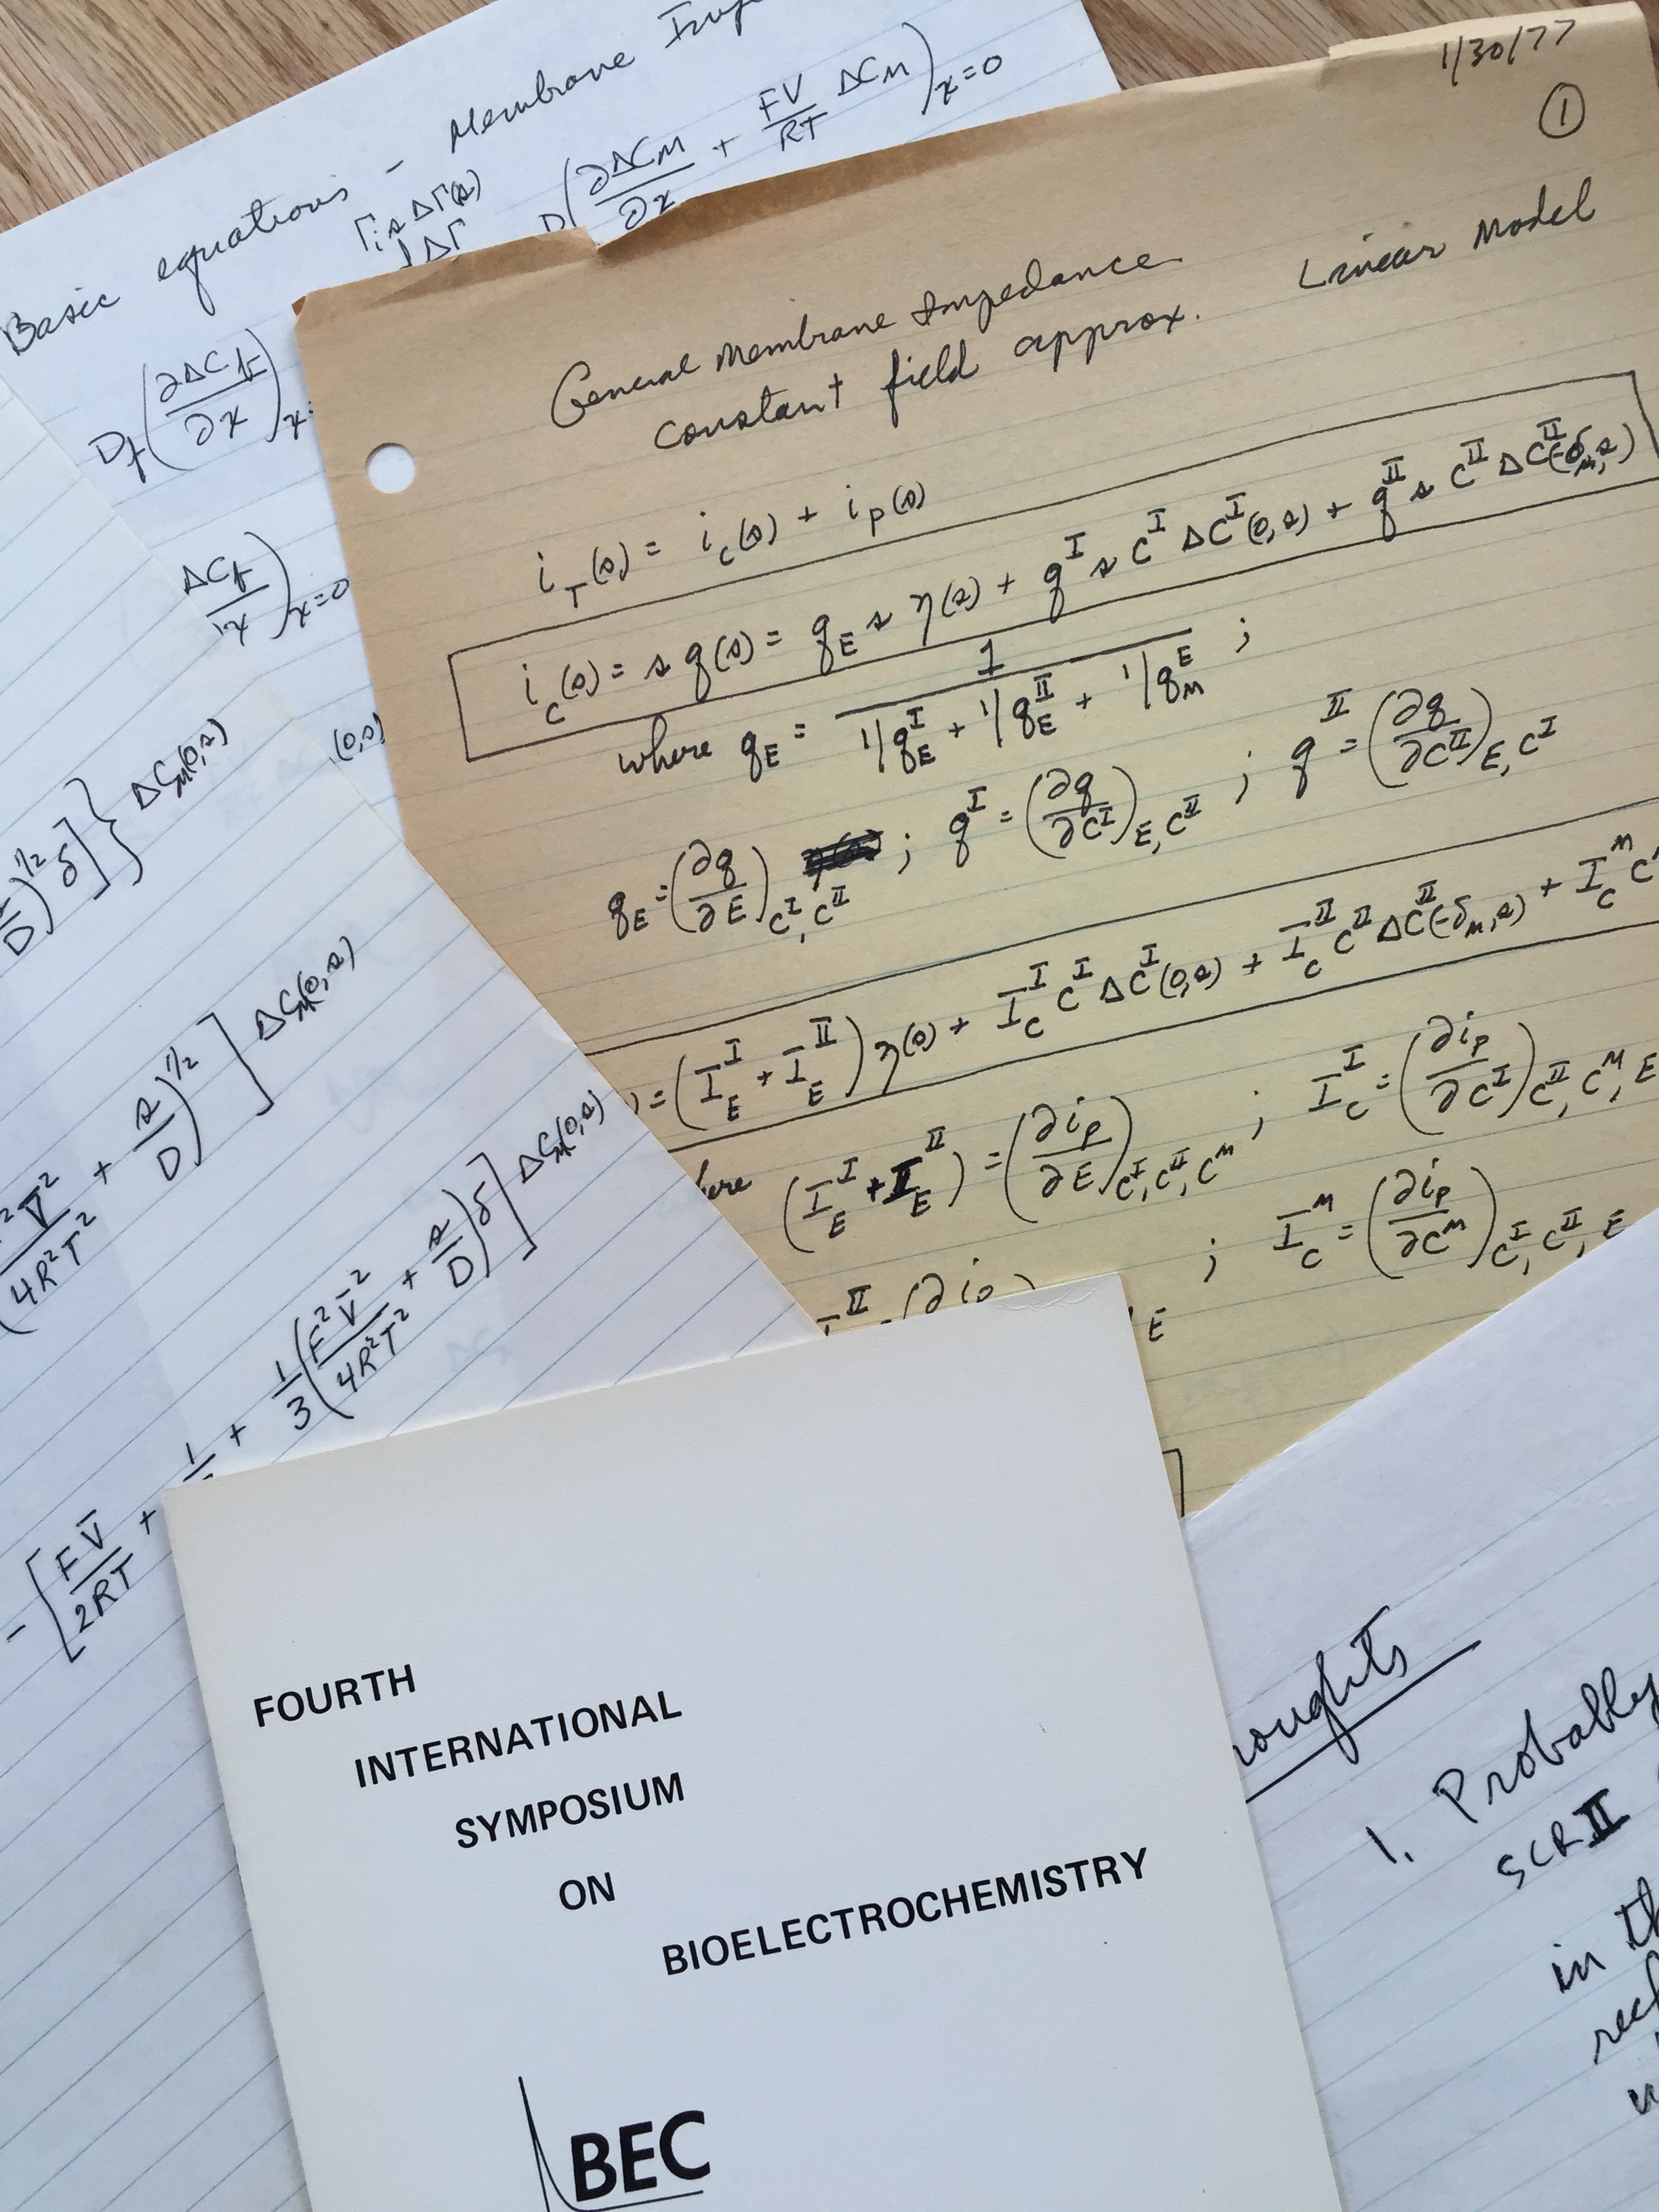 Basic equations - Membrane
Γi s ΔΓ(s)
D(∂ΔC_M/∂x + FV/RT ΔC_M)_{x=0}
D_f(∂ΔC_f/∂x)_x
ΔC_f
)_{x=0}
(0,s)
1/2 δ]} ΔC_M(0,s)
D)
V̄²/4R²T² + s/D)^{1/2}] ΔC_M(0,s)
-[FV̄/2RT + 1 + 1/3(F²V̄²/4R²T² + s/D)δ] ΔC_M(0,s)
1/30/77
①
General Membrane Impedance Linear Model
constant field approx.
i_T(s) = i_c(s) + i_p(s)
i_c(s) = s q(s) = q_E s η(s) + q^I s C^I ΔC^I(0,s) + q^II s C^II ΔC^II(-δ_M,s)
where q_E = 1/(1/q_E^I + 1/q_E^II + 1/q_M^E) ;
q_E = (∂q/∂E)_{C^I, C^II} ; q^I = (∂q/∂C^I)_{E, C^II} ; q^II = (∂q/∂C^II)_{E, C^I}
) = (I_E^I + I_E^II) η(s) + I_C^I C^I ΔC^I(0,s) + I_C^II C^II ΔC^II(-δ_M,s) + I_C^M C
(I_E^I + I_E^II) = (∂i_p/∂E)_{C^I, C^II, C^M} ; I_C^I = (∂i_p/∂C^I)_{C^II, C^M, E}
II (∂i_p) E ; I_C^M = (∂i_p/∂C^M)_{C^I, C^II, E}
FOURTH
INTERNATIONAL
SYMPOSIUM
ON
BIOELECTROCHEMISTRY
BEC
oughts
1. Probably
SCR II
in